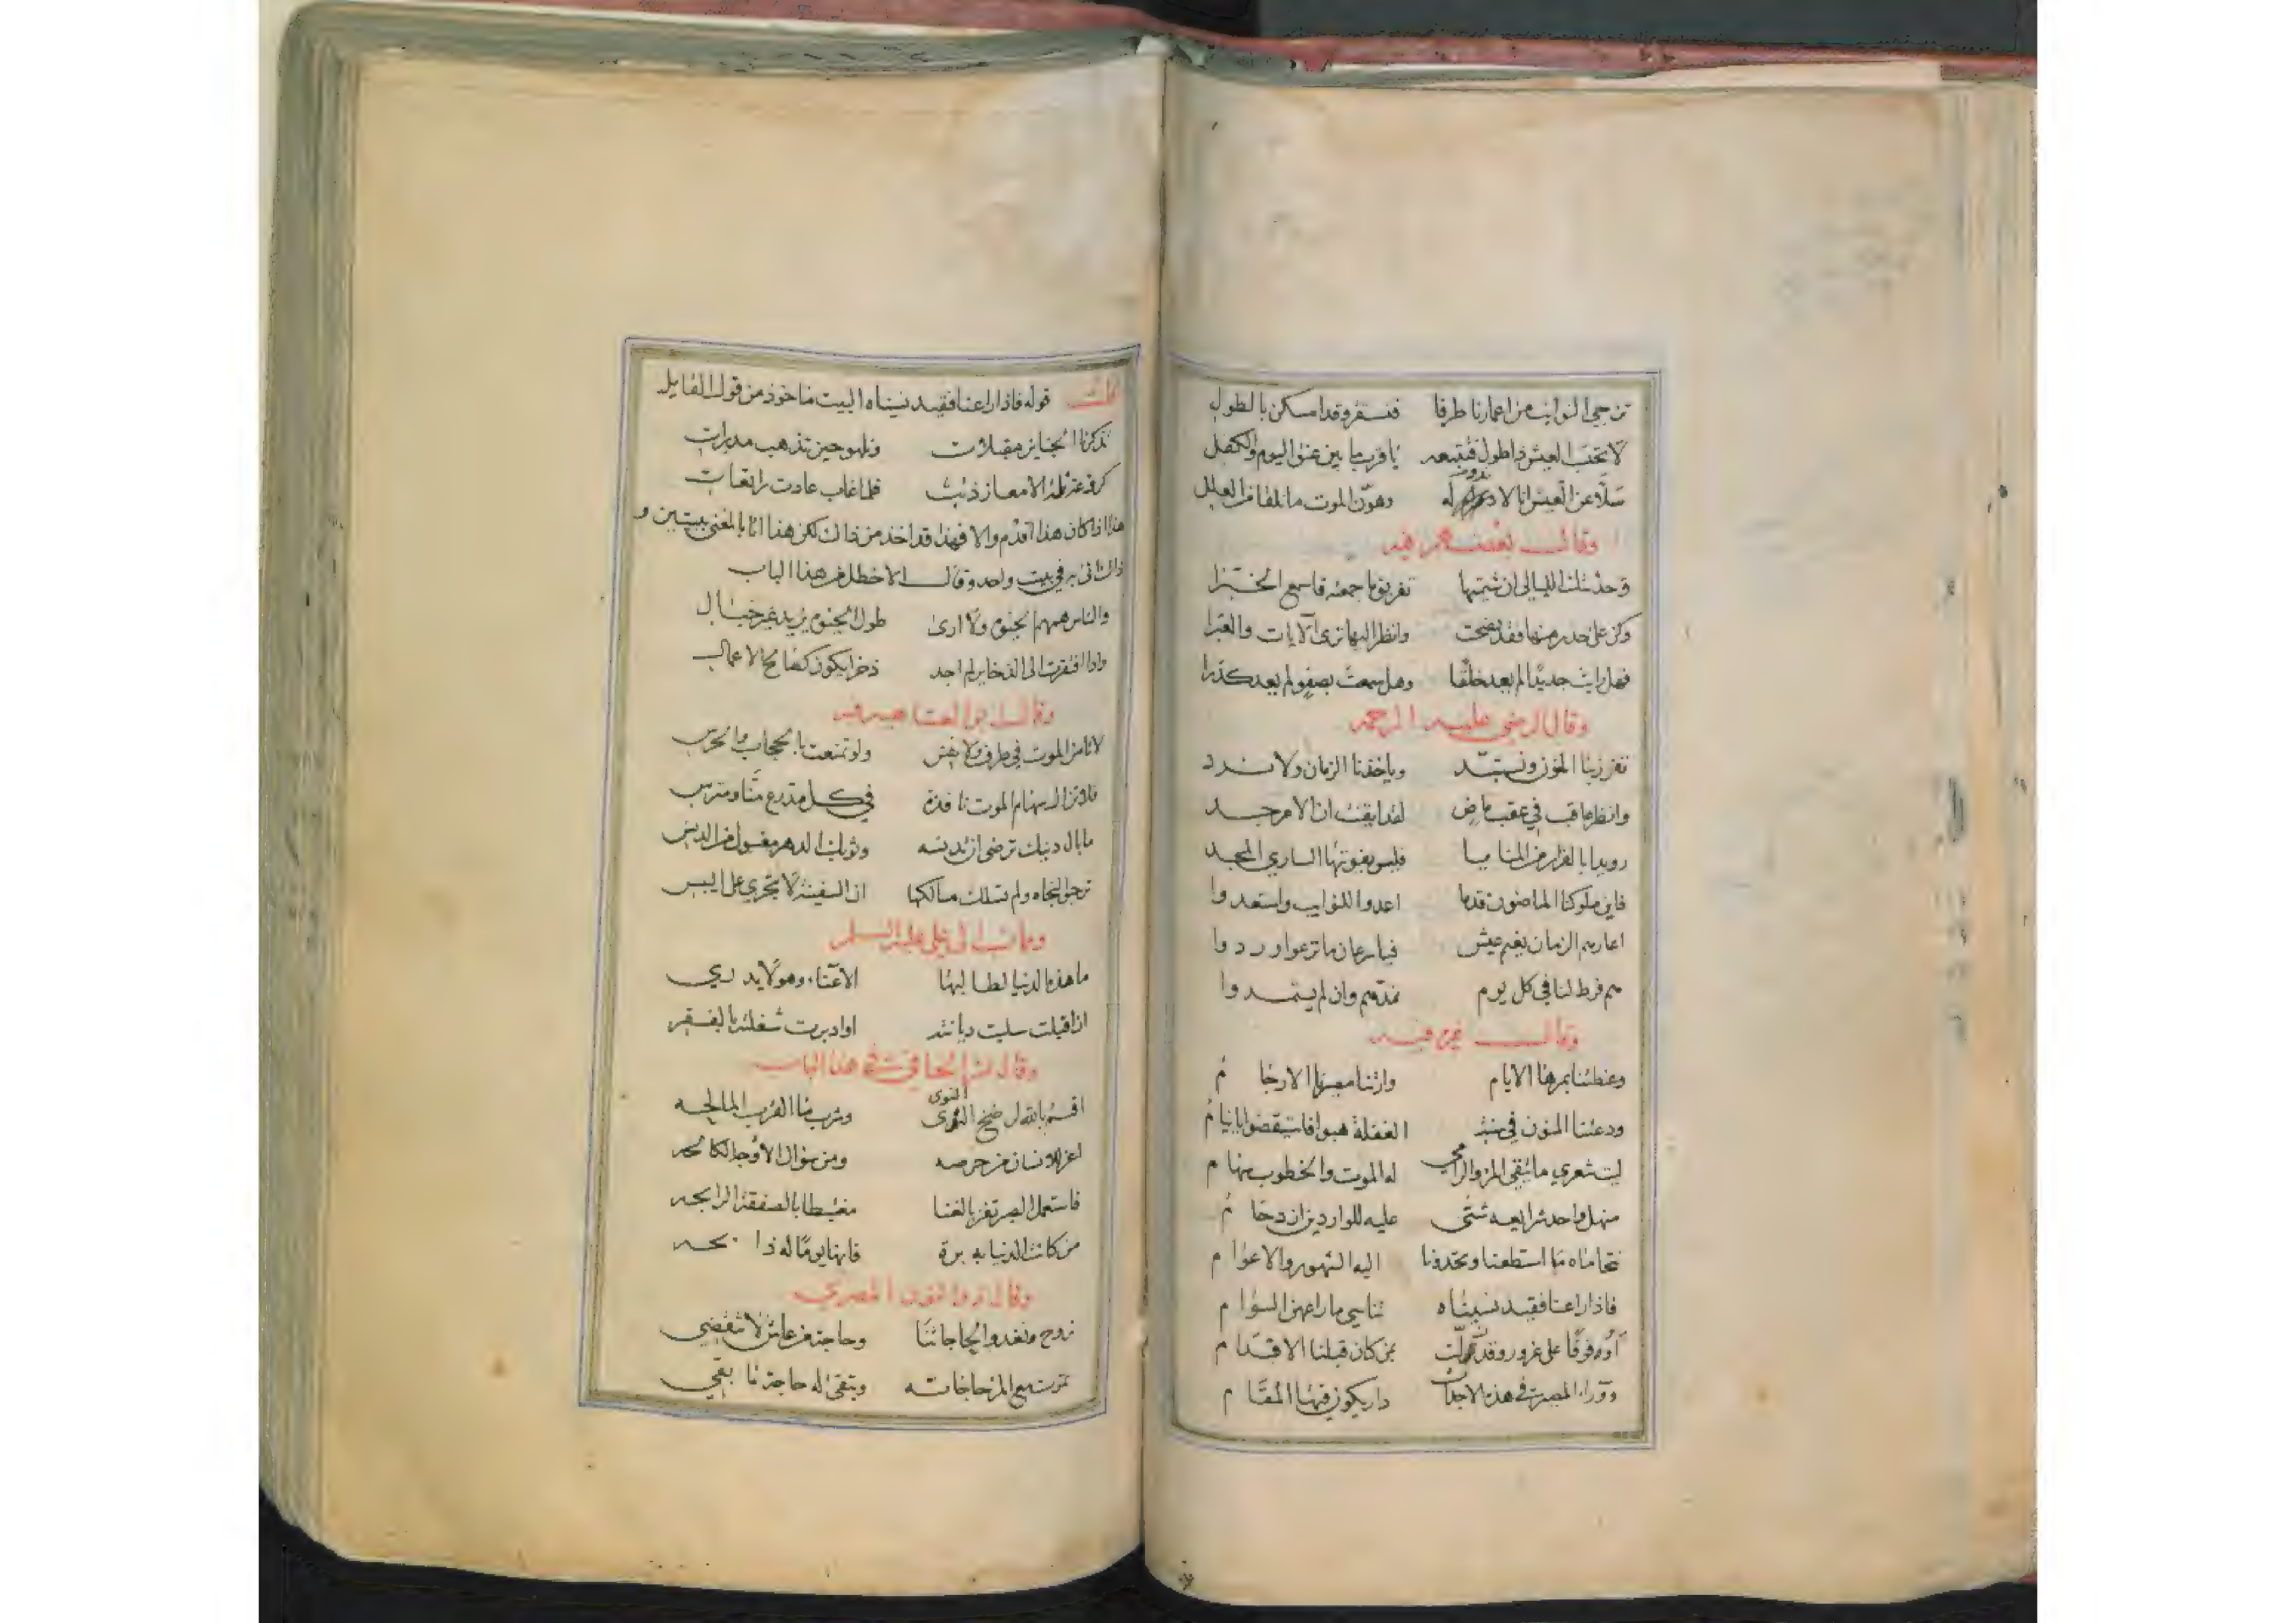 تزجي النوائب من اعمارنا طرفا فنستقر وقد امسكن بالطول
لا تحسب العيش ذا طول فتتبعه يا قرب ما بين عنق اليوم والكفل
سلا عن العيش انا لا ندوم له وهون الموت ما نلقا من العلل
وقال بعضهم فيه
وحدثتك الليالي ان شيمتها تفريق ما جمعته فاسمع الخبرا
وكن على حذر منها فقد نصحت وانظر اليها ترى الآيات والعبرا
فهل رايت جديدا لم يعد خلقا وهل سمعت بصفو لم يعد كدرا
وقال الرضي عليه الرحمه
تفرزنا المنون وتستبد وياخذنا الزمان ولا نرد
وانظر ماقب في عقب ماض لقد ايقنت ان الامر جد
رويدا بالفرار من المنايا فليس يفوتها الساري المجد
فاين ملوكنا الماضون قدما اعدوا للنوايب واستعدوا
اعارهم الزمان نعيم عيش فيا سرعان ما نزعوا وردوا
هم فرط لنا في كل يوم نمدهم وان لم يستمدوا
وقال فيه
وعظتنا بمرها الايام وارتنا مصيرنا الارجام
ودعتنا المنون في سنة الغفلة هبوا فاستيقضوا يا نيام
ليت شعري ما يتقي المرء والرامي له الموت والخطوب سهام
منهل واحد شرايعه شتى عليه للواردين ازدحام
نتحاماه ما استطعنا وتحدونا اليه الشهور والاعوام
فاذا راعنا فقيد نسيناه تناسي ما راعهن السوام
اوه فوقا على غرور وقد زلت بمن كان قبلنا الاقدام
ووراء المصير في هذه الاجداث دار يكون فيها المقام
قلت قوله فاذا راعنا فقيد نسيناه البيت ماخوذ من قول القايل
تذكرنا الجنايز مقبلات ونلهو حين تذهب مدبرات
كروعة ثلة لامعار ذئب فلما غاب عادت راتعات
هذا اذا كان هذا اقدم والا فهذا قد اخذ من ذاك لكن هذا اتا بالمغنى ببيتين و
ذاك اتى به في بيت واحد وقال الاخطل من هذا الباب
والناس همهم الحيوة ولا ارى طول الحيوة يزيد غير خبال
واذا افتقرت الى الذخاير لم اجد ذخرا يكون كصالح الاعمال
وقال ابو العتاهيه
لا تامن الموت في طرف ولا نفس ولو تمنعت بالحجاب والحرس
فلا تزال سهام الموت نافذة في كل مدرع منا ومترس
ما بال دينك ترضى ان تدنسه وثوبك الدهر مغسول من الدنس
ترجو النجاه ولم تسلك مسالكها ان السفينة لا تجري على اليبس
علي عليه السلم
ما هذه الدنيا لطالبها الا عناء وهو لا يدري
ان اقبلت سلبت ديانته او ادبرت شغلته بالفقر
وقال بشر الحافي في هذا الباب
اقسم بالله لرضخ النوى وشرب ما القرب المالحه
اعز للانسان من حرصه ومن سؤال الاوجه الكالحه
فاستعمل الصبر تفز بالغنا مغتبطا بالصفقة الرابحه
من كانت الدنيا به برة فانها يوما له ذابحه
وقال ذو النون المصري
نروح ونغدو لحاجاتنا وحاجة من عاش لا تنقضي
تموت مع المرء حاجاته وتبقى له حاجة ما بقي